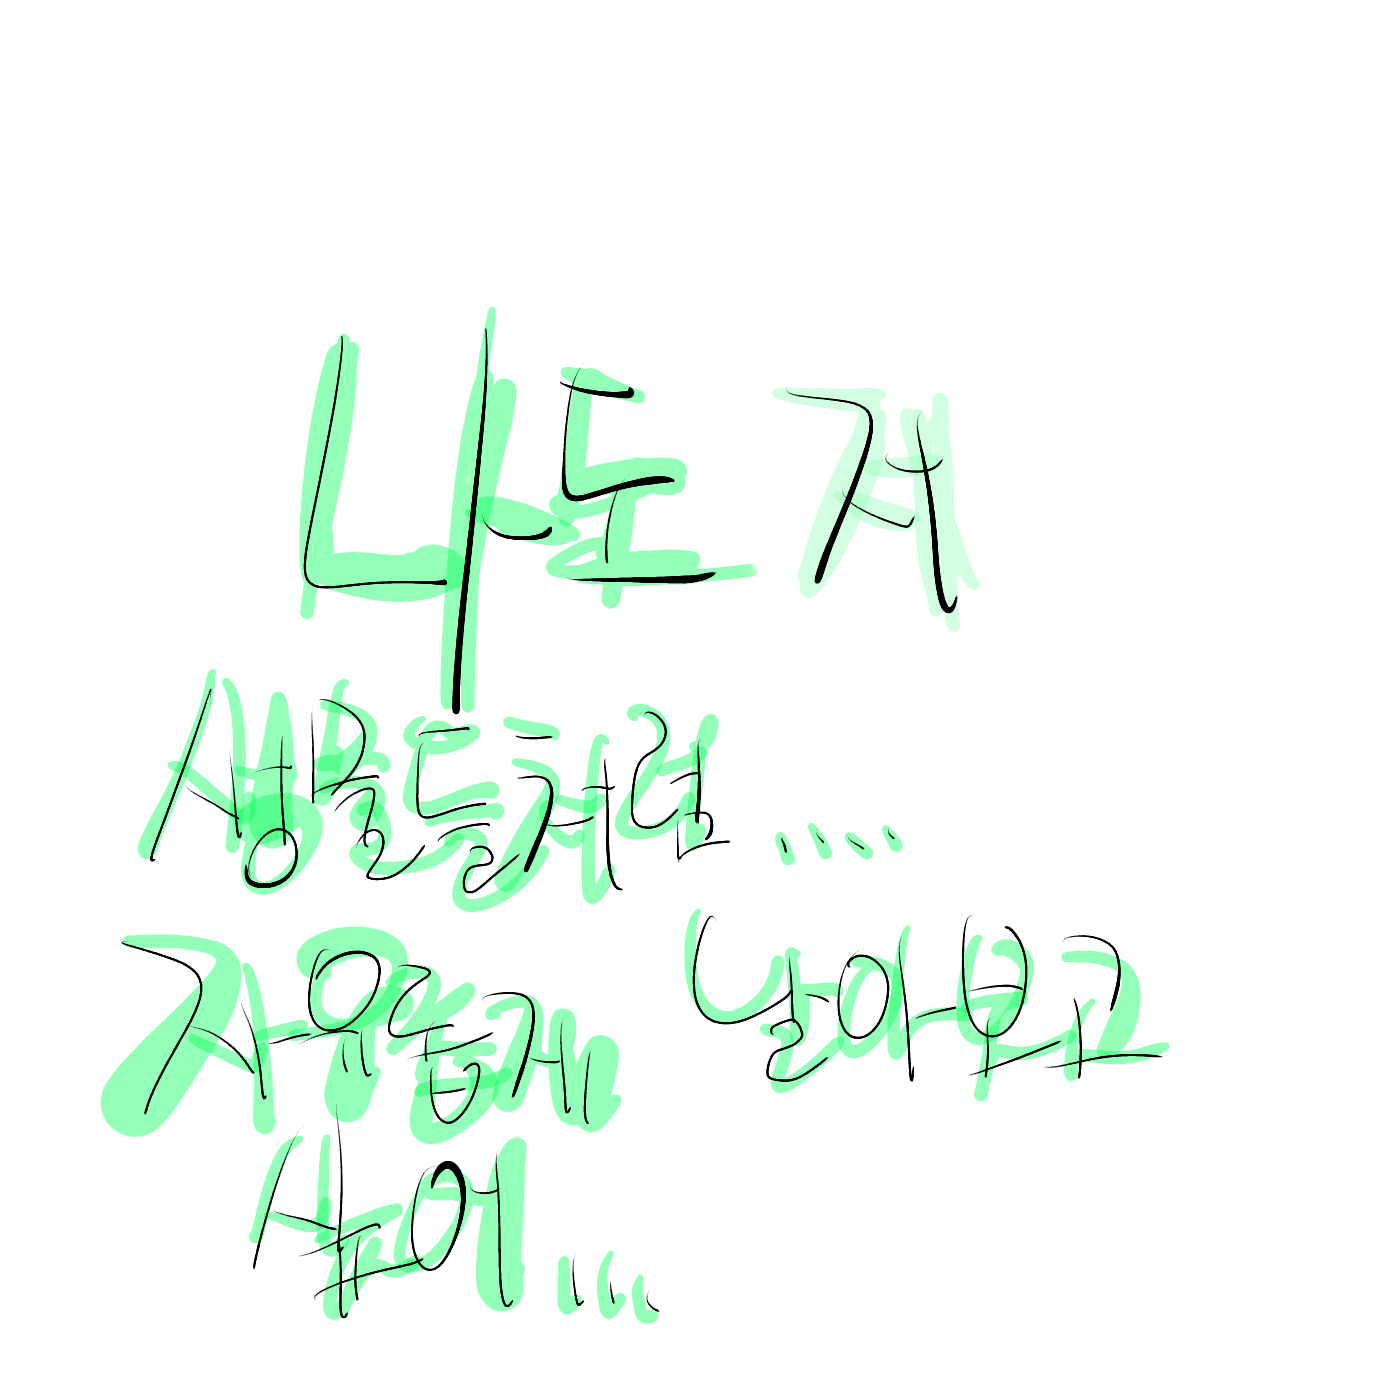 나도 저
생물들처럼....
자유롭게 날아보고
싶어...